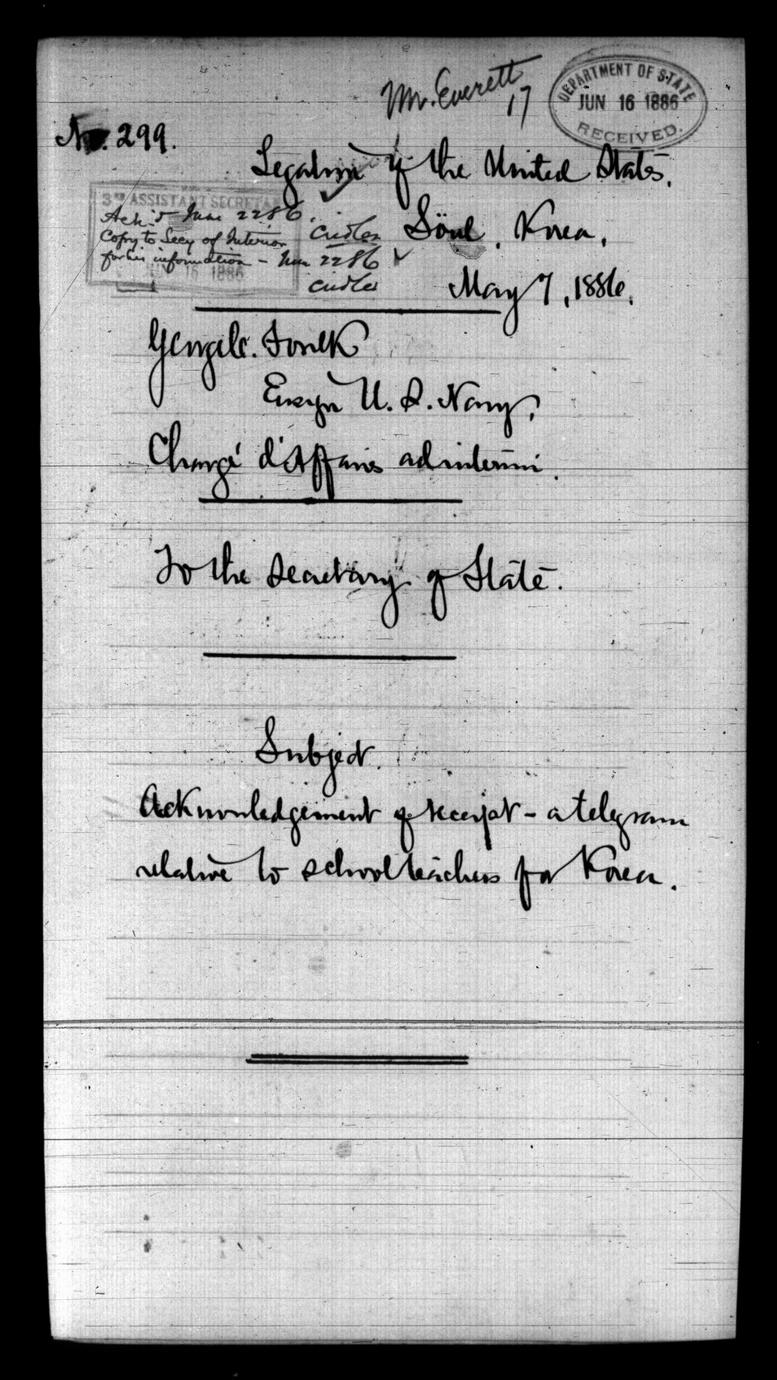 Mr. Everett
17
DEPARTMENT OF STATE
JUN 16 1886
RECEIVED.
No. 299.
Legation of the United States,
3RD ASSISTANT SECRETARY
JUN 16 1886
Ack'd June 22 86
Copy to Secy of Interior
for his information - June 22 86
Söul, Korea,
May 7, 1886.
George C. Foulk
Ensign U. S. Navy,
Chargé d'Affaires ad interim.
To the Secretary of State.
Subject.
Acknowledgement of receipt - a telegram
relative to school teachers for Korea.